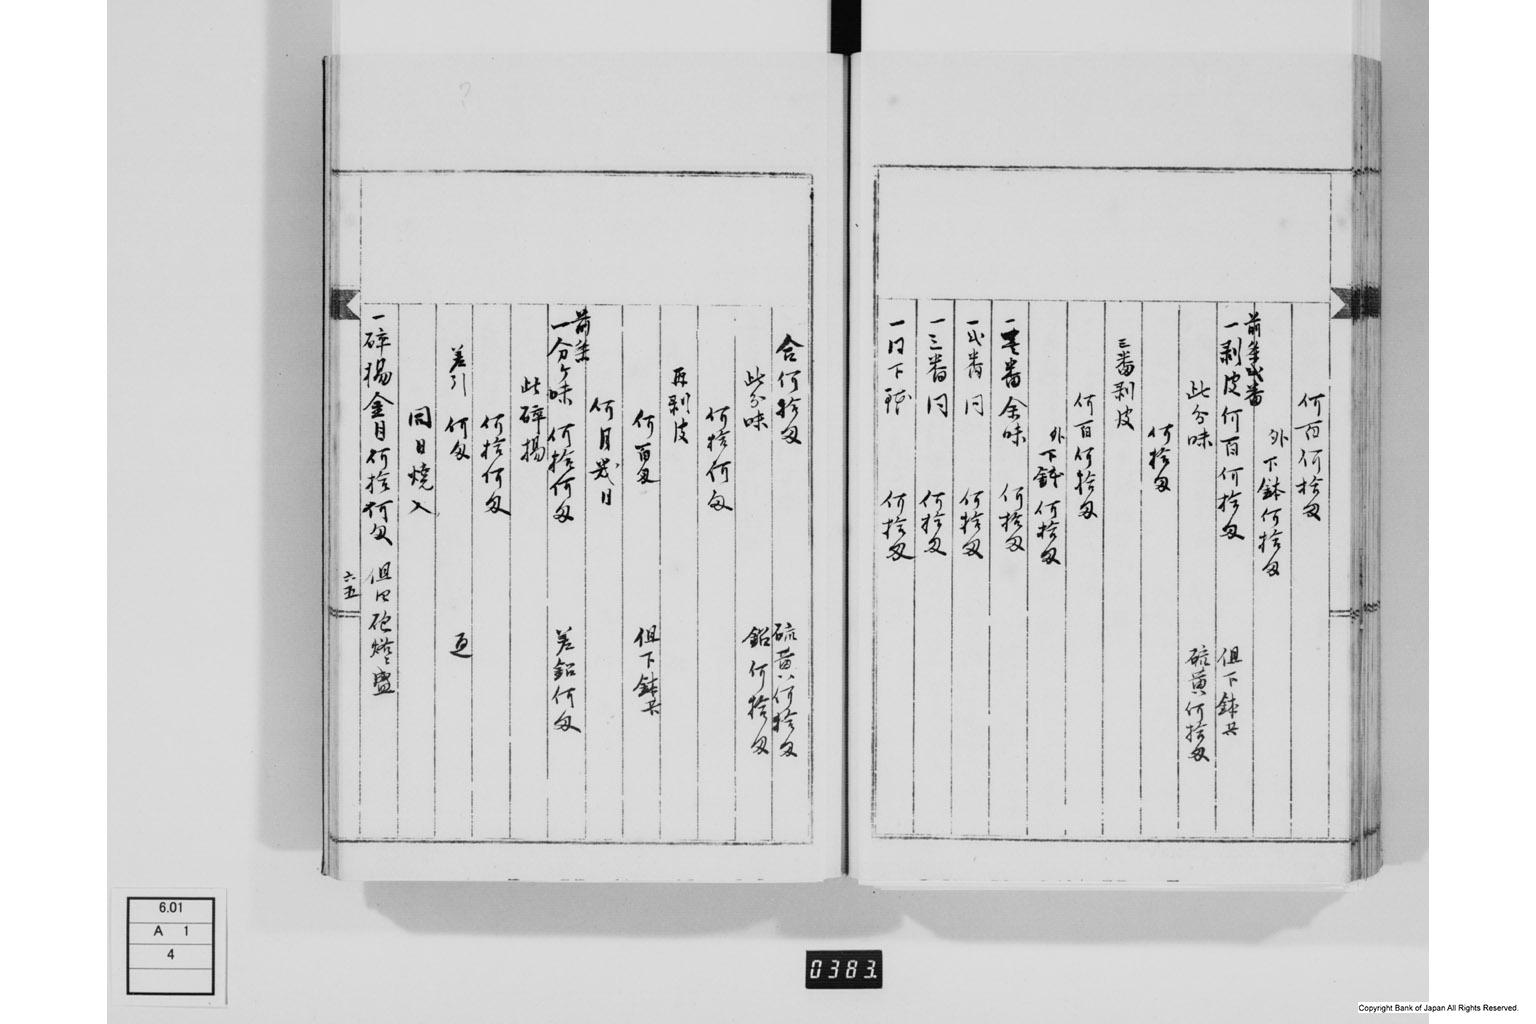 何百何拾匁
外下鉢何拾匁
前条弐番
一剥皮何百何拾匁 但下鉢共
此分味 硫黄何拾匁
何拾匁
三番剥皮
何百何拾匁
外下鉢何拾匁
一壱番余味 何拾匁
一弐番同 何拾匁
一三番同 何拾匁
一同下 何拾匁
合何拾匁 硫黄何拾匁
此分味 鉛何拾匁
何拾何匁
再剥皮
何百匁 但下鉢共
何月幾日
前条
一分ケ味 何拾何匁 差鉛何匁
此砕揚
何拾何匁
差引 何匁
同日焼入
一砕揚金目何拾何匁 但
六五
6.01
A 1
4
0383
Copyright Bank of Japan All Rights Reserved.